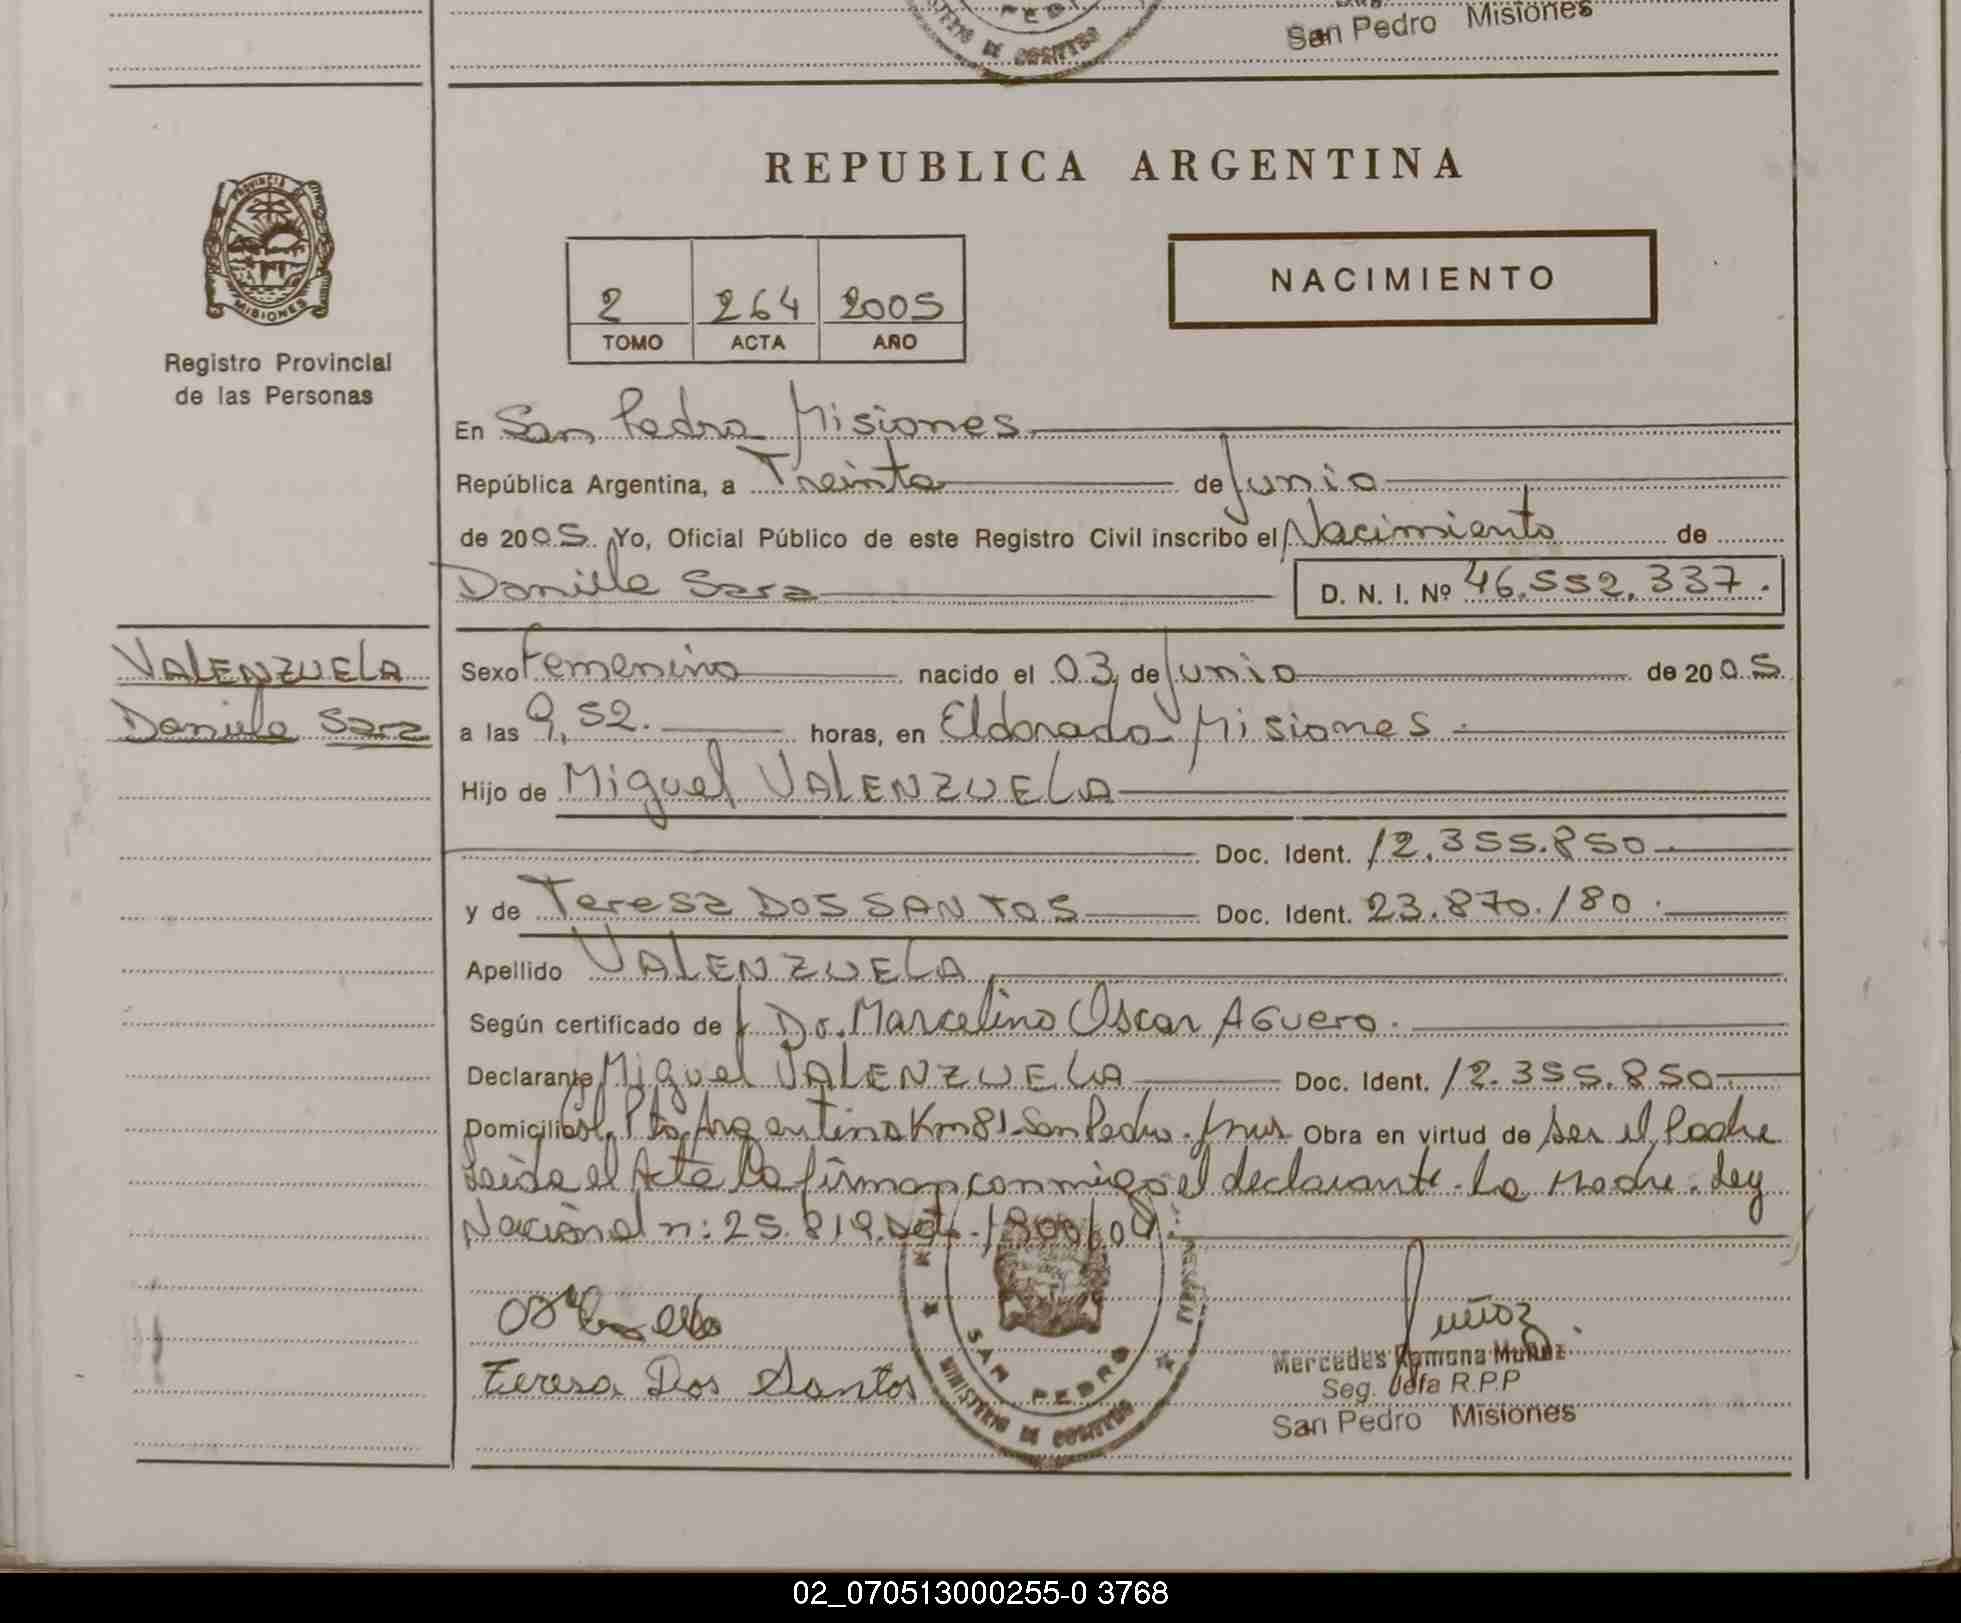 PEDRO
MINISTERIO DE GOBIERNO
San Pedro Misiones
PROVINCIA DE
MISIONES
Registro Provincial
de las Personas
REPUBLICA ARGENTINA
2 264 2005
TOMO ACTA AÑO
NACIMIENTO
En San Pedro Misiones
República Argentina, a Treinta de Junio
de 2005. Yo, Oficial Público de este Registro Civil inscribo el Nacimiento de
Daniela Sara D. N. I. Nº 46.552.337.
VALENZUELA
Daniela Sara
Sexo Femenino nacido el 03 de Junio de 2005
a las 9,52. horas, en Eldorado Misiones
Hijo de Miguel VALENZUELA
Doc. Ident. 12.355.850
y de Teresa DOS SANTOS Doc. Ident. 23.870.180
Apellido VALENZUELA
Según certificado de Dr. Marcelino Oscar AGuero.
Declarante Miguel VALENZUELA Doc. Ident. 12.355.850
Domicilio Col. Pto. Argentino Km 81 San Pedro. Mnes Obra en virtud de ser el Padre
Leida el Acta la firman conmigo el declarante. La Madre. Ley
Nacional n: 25.819.
Teresa Dos Santos
Muñoz
Mercedes Ramona Muñoz
Seg. Jefa R.P.P
San Pedro Misiones
SAN PEDRO
MINISTERIO DE GOBIERNO
02_070513000255-0 3768